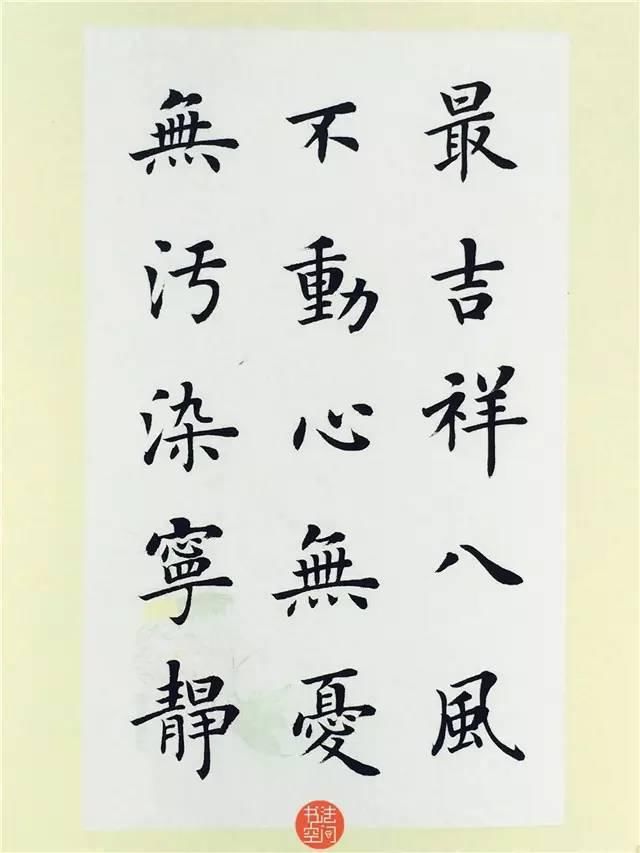 最吉祥八風
不動心無憂
無汚染寧靜
书法
空间